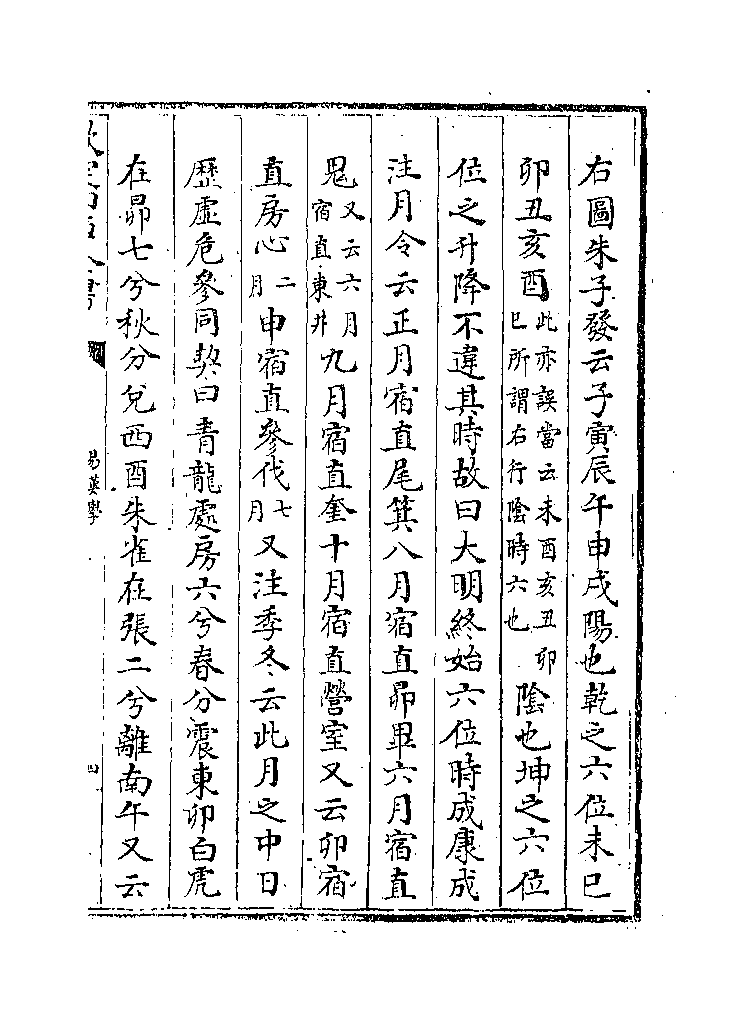 右圖朱子發云子寅辰午申戌陽也乾之六位未巳
卯丑亥酉此亦誤當云未酉亥丑卯巳所謂右行陰時六也陰也坤之六位
位之升降不違其時故曰大明終始六位時成康成
注月令云正月宿直尾箕八月宿直昴畢六月宿直
鬼又云六月宿直東井九月宿直奎十月宿直營室又云卯宿
直房心二月申宿直參伐七月又注季冬云此月之中日
歷虛危參同契曰青龍處房六兮春分震東卯白虎
在昴七兮秋分兌西酉朱雀在張二兮離南午又云
易漢學
四